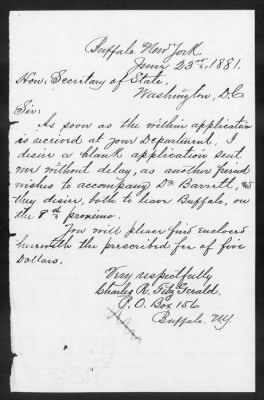 Buffalo New York.
June 23rd, 1881.
Hon. Secretary of State,
Washington, D.C
Sir:
As soon as the within application
is received at your Department, I
desire a blank application sent
me without delay, as another friend
wishes to accompany Dr Barrett, and
they desire, both to leave Buffalo, on
the 8th proximo.
You will please find enclosed
herewith the prescribed fee of five
Dollars.
Very respectfully
Charles R. Fitz Gerald.
P.O. Box 156
Buffalo. N.Y.